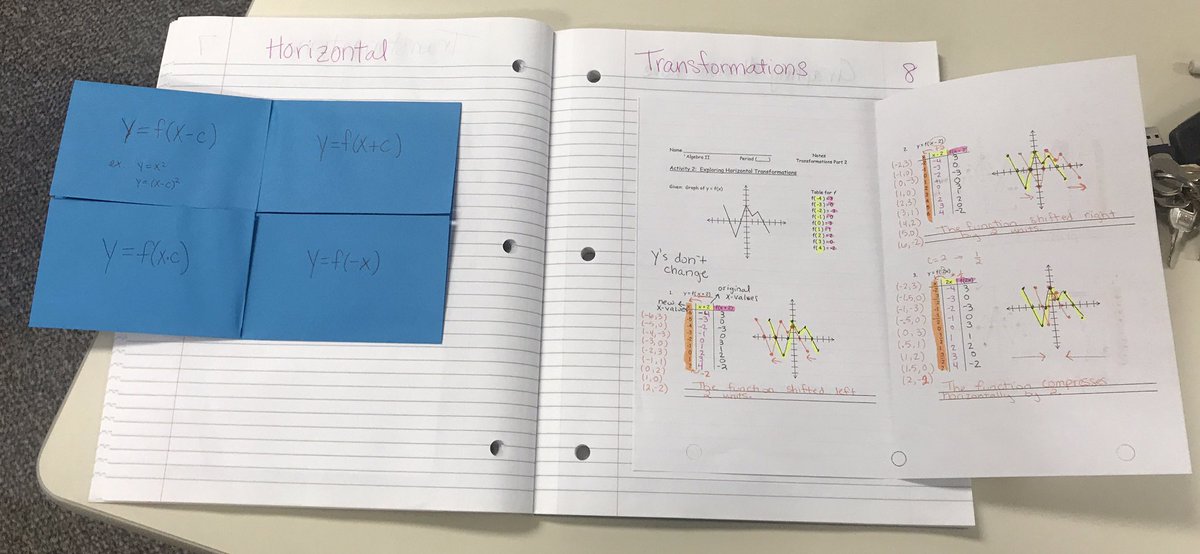 Horizontal
y=f(x-c)
ex y=x²
y=(x-c)²
y=f(x+c)
y=f(x·c)
y=f(-x)
Transformations 8
Name
Algebra II Period Notes
Transformations Part 2
Activity 2: Exploring Horizontal Transformations
Given: Graph of y = f(x)
Table for f
y's don't
change
1. y=f(x+2)
original
x-values
new
x-values
x+2 f(x+2)
(-6,3)
(-5,0)
(-4,-3)
(-3,0)
(-2,3)
(-1,1)
(0,2)
(1,0)
(2,-2)
The function shifted left
2 units.
2. y=f(x-2)
(-2,3)
(-1,0)
(0,-3)
(1,0)
(2,3)
(3,1)
(4,2)
(5,0)
(6,-2)
The function shifted right
by 2 units.
c=2 → 1/2
3. y=f(2x)
2x f(2x)
(-2,3)
(-1.5,0)
(-1,-3)
(-.5,0)
(0,3)
(.5,1)
(1,2)
(1.5,0)
(2,-2)
The function compresses
horizontally by 2.